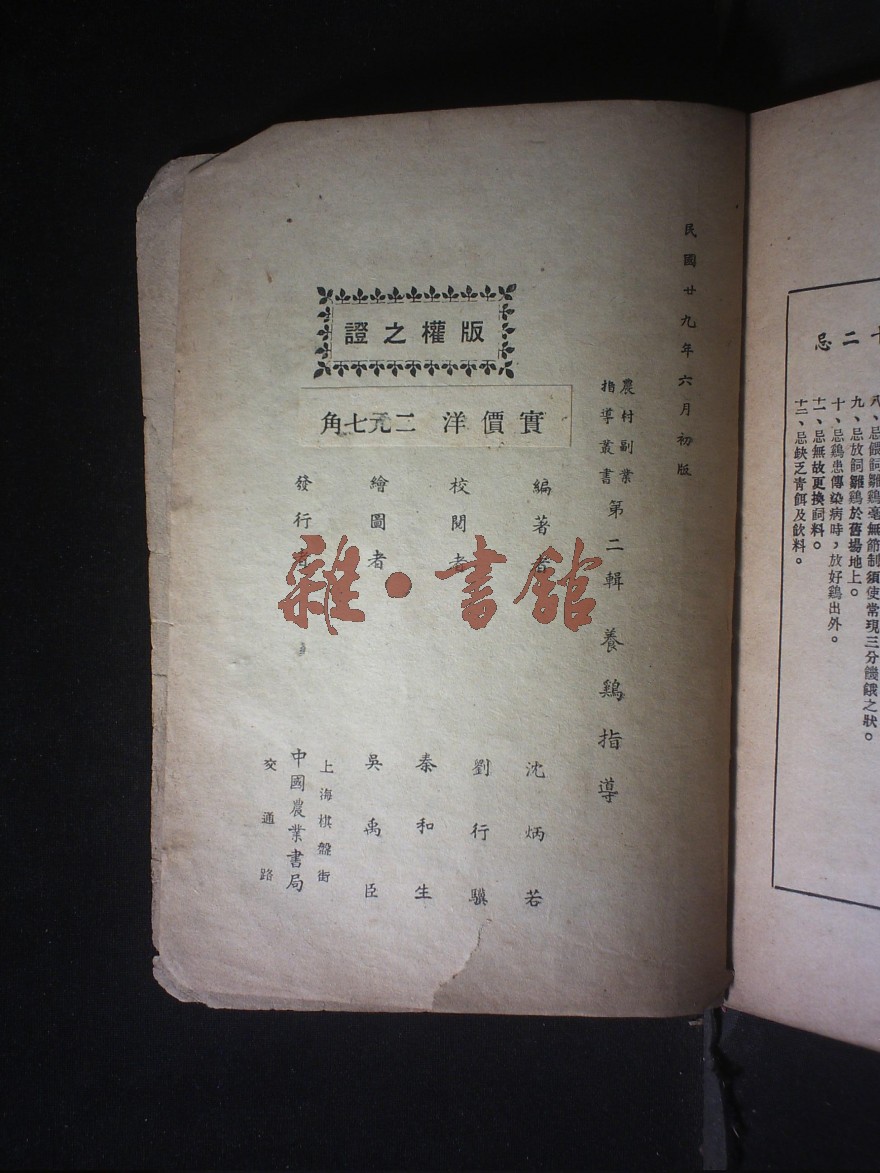 十二忌
八、忌餵飼雛鷄毫無節制須使常現三分饑餓之狀。
九、忌放飼雛鷄於舊場地上。
十、忌鷄患傳染病時，放好鷄出外。
十一、忌無故更換飼料。
十二、忌缺乏青餌及飲料。
民國廿九年六月初版
農村副業
指導叢書
第二輯 養鷄指導
版權之證
實價洋 二元七角
編著者 沈炳若
劉行驥
校閱者 秦和生
繪圖者 吳禹臣
發行者
上海棋盤街
中國農業書局
交通路
雜·書館